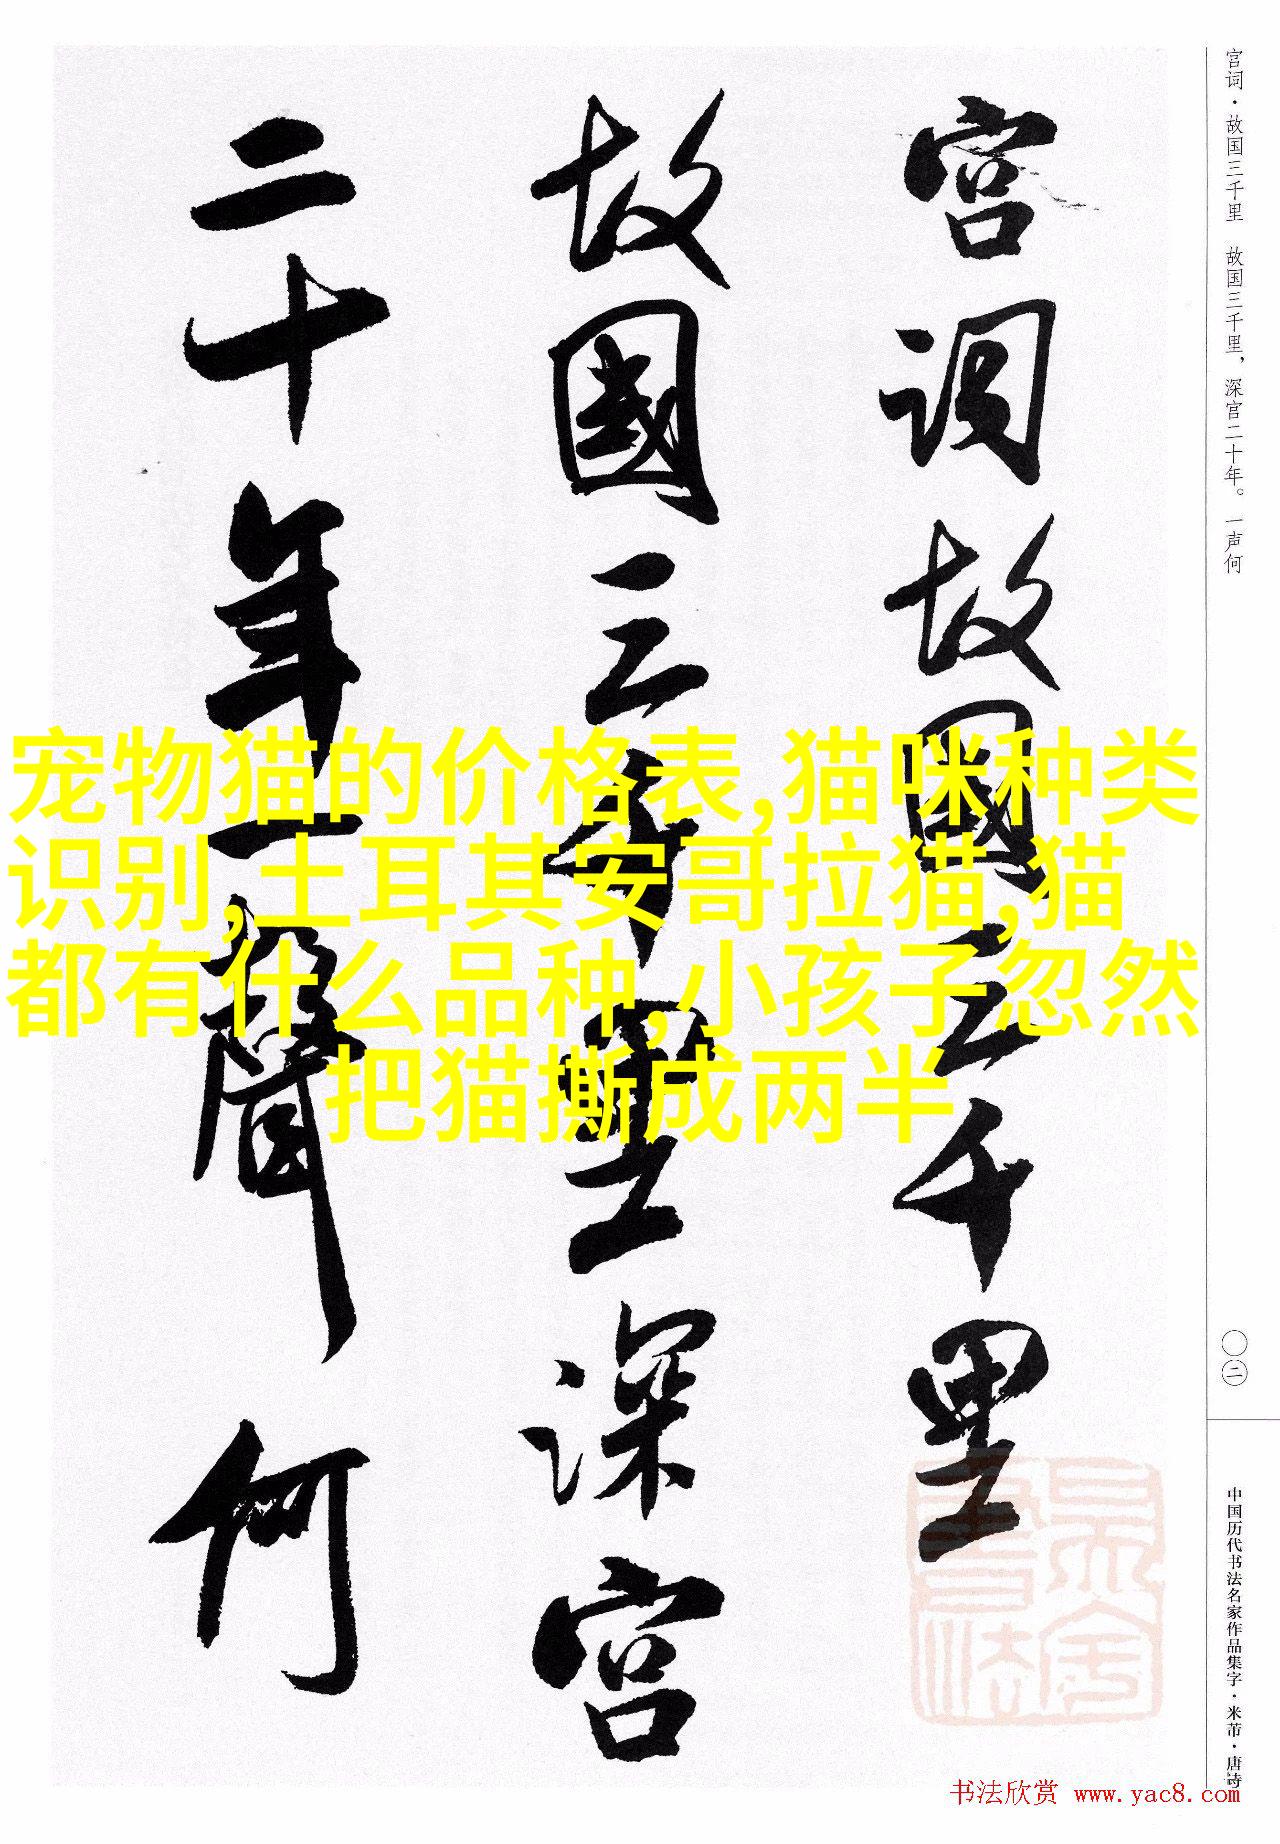 宫词·故国三千里 故国三千里，深宫二十年。一声何
宫词故國三千里
故國三千里深宫
二十年一聲何
宠物猫的价格表,猫咪种类
识别,土耳其安哥拉猫,猫
都有什么品种,小孩子忽然
把猫撕成两半
〇二
中国历代书法名家作品集字·米芾·唐诗
书法欣赏 www.yac8.com